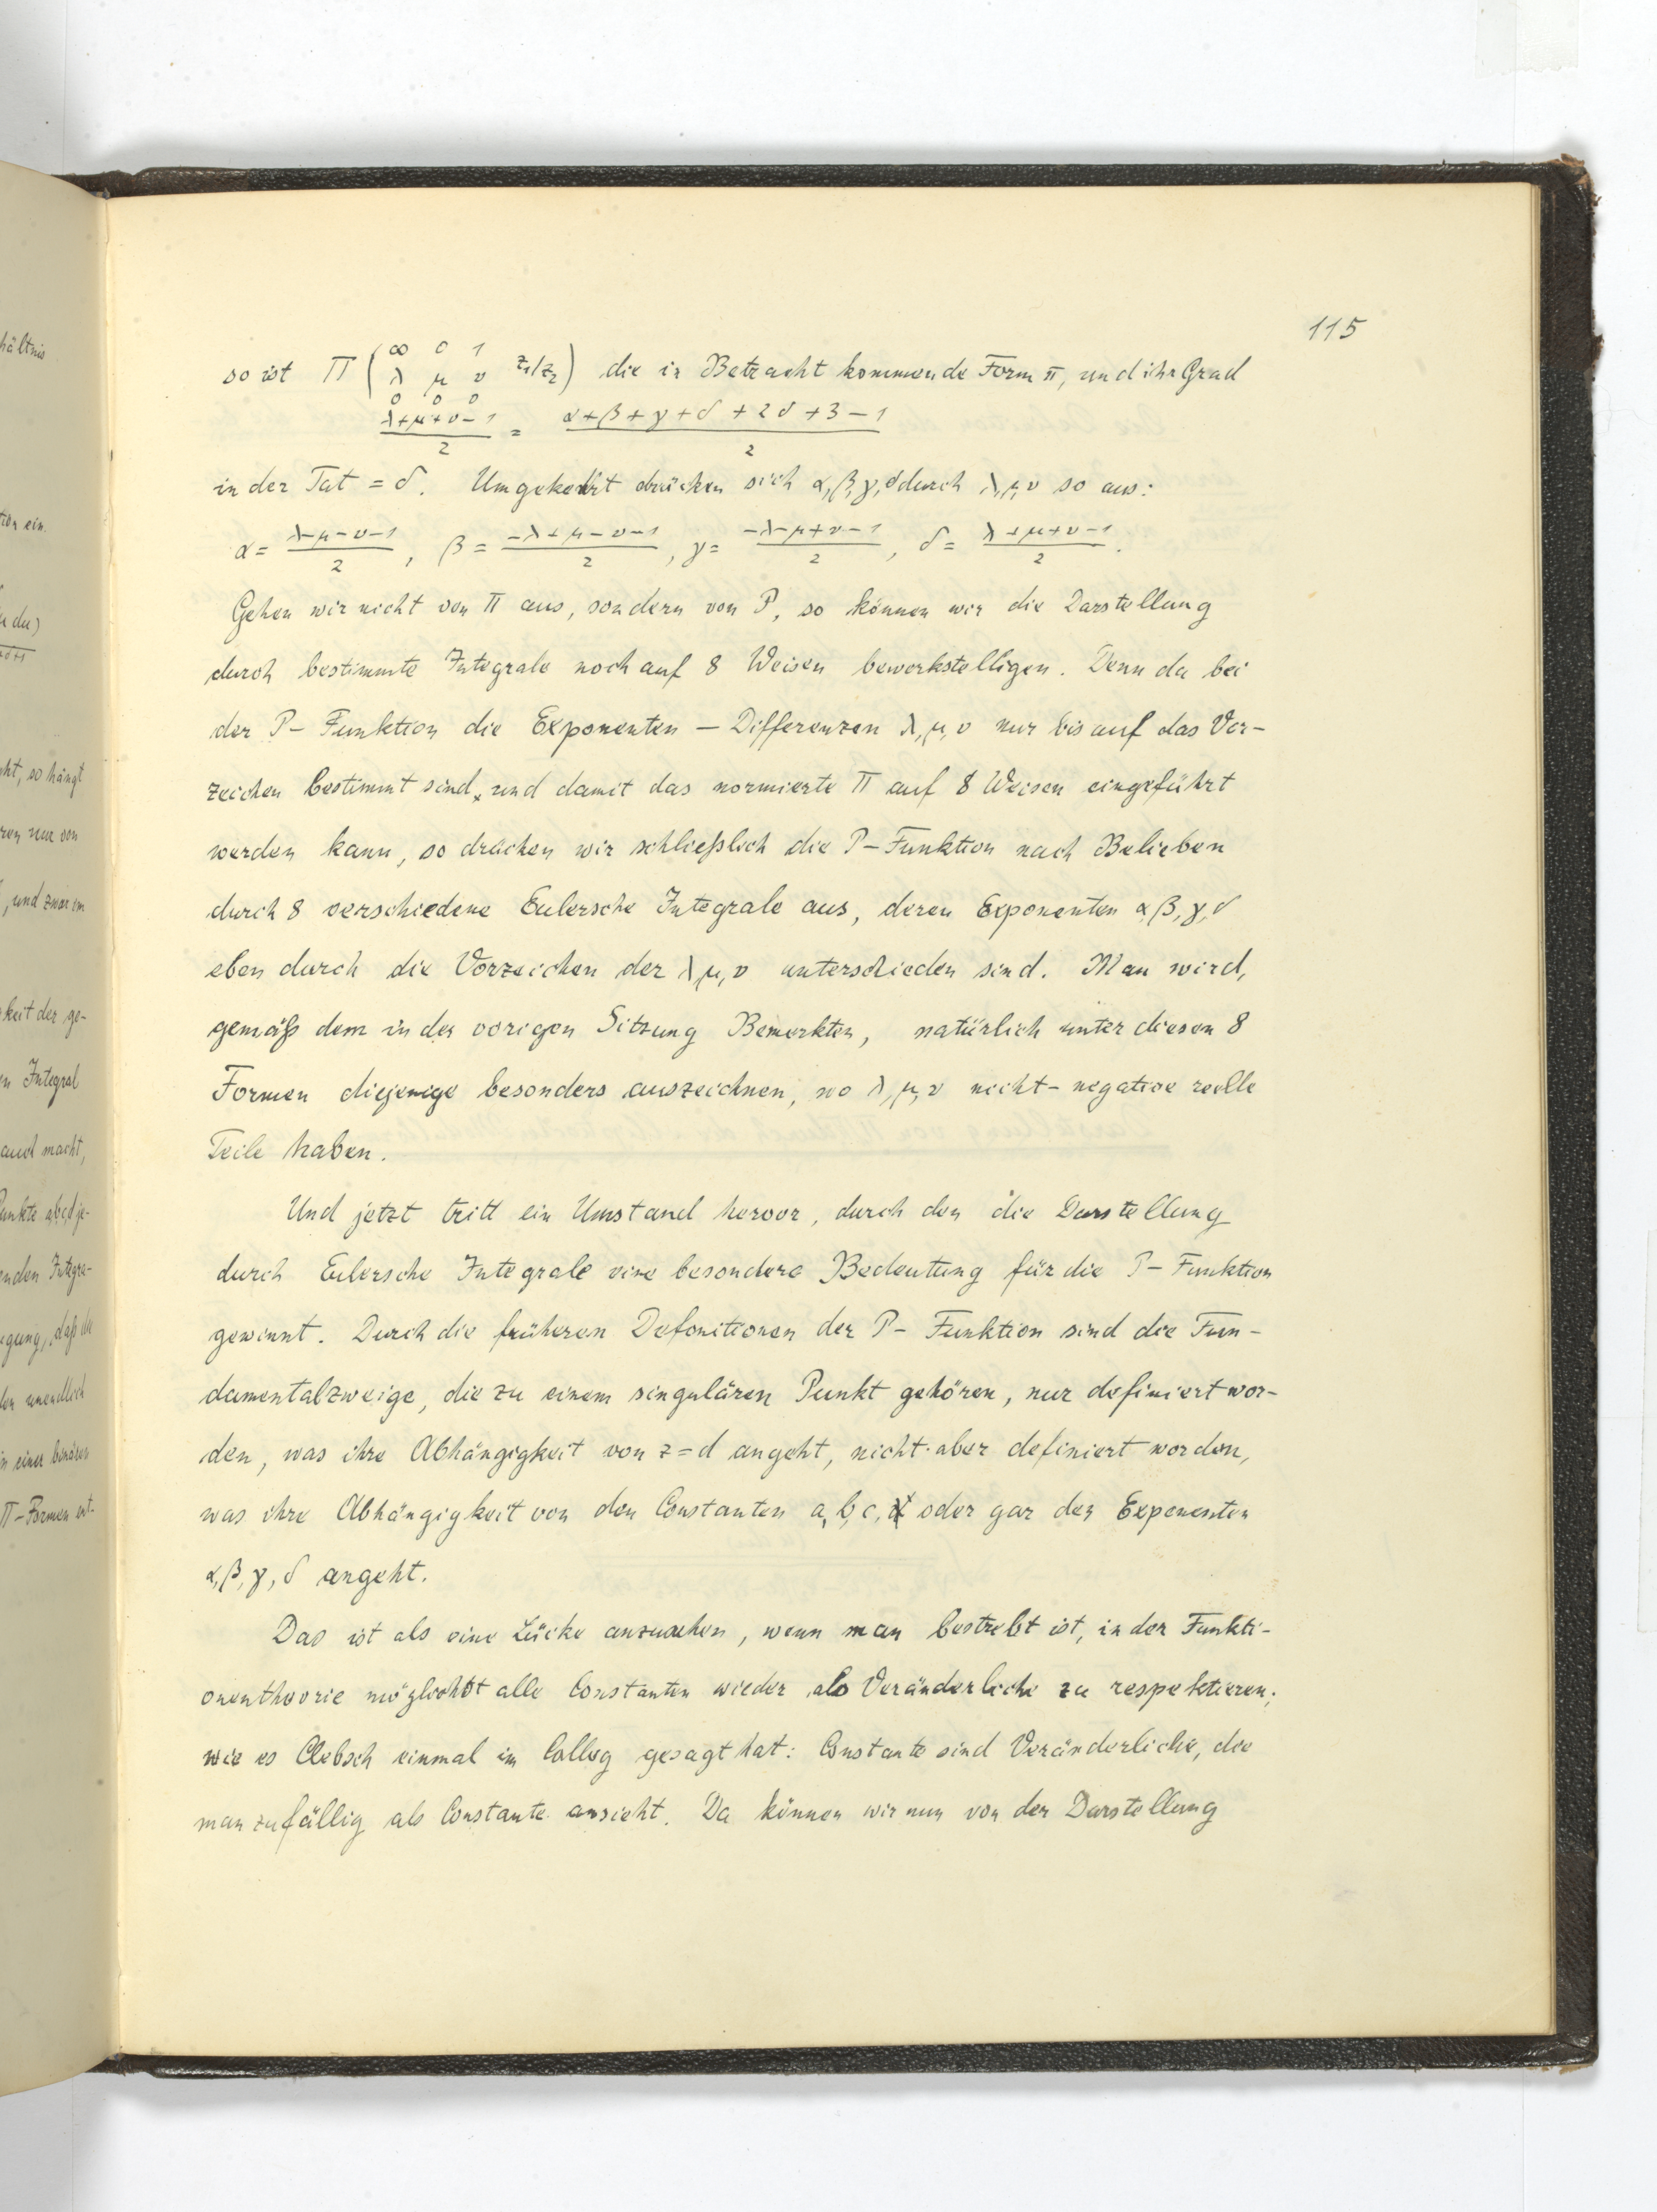 115
so ist Π ( ∞ 0 1 z₁/z₂ ) die in Betracht kommende Form π, und ihr Grad
λ μ ν
0 0 0
(λ+μ+ν-1)/2 = (α+β+γ+δ+2δ+3-1)/2
in der Tat = δ. Umgekehrt drücken sich α, β, γ, δ durch λ, μ, ν so aus:
α = (λ-μ-ν-1)/2, β = (-λ+μ-ν-1)/2, γ = (-λ-μ+ν-1)/2, δ = (λ+μ+ν-1)/2.
Gehen wir nicht von Π aus, sondern von P, so können wir die Darstellung
durch bestimmte Integrale noch auf 8 Weisen bewerkstelligen. Denn da bei
der P- Funktion die Exponenten - Differenzen λ, μ, ν nur bis auf das Vor-
zeichen bestimmt sind, und damit das normierte Π auf 8 Weisen eingeführt
werden kann, so drücken wir schließlich die P-Funktion nach Belieben
durch 8 verschiedene Eulersche Integrale aus, deren Exponenten α, β, γ, δ
eben durch die Vorzeichen der λ, μ, ν unterschieden sind. Man wird,
gemäß dem in der vorigen Sitzung Bemerkten, natürlich unter diesen 8
Formen diejenige besonders auszeichnen, wo λ, μ, ν nicht-negative reelle
Teile haben.
Und jetzt tritt ein Umstand hervor, durch den die Darstellung
durch Eulersche Integrale eine besondere Bedeutung für die P-Funktion
gewinnt. Durch die früheren Definitionen der P- Funktion sind die Fun-
damentalzweige, die zu einem singulären Punkt gehören, nur definiert wor-
den, was ihre Abhängigkeit von z=d angeht, nicht aber definiert worden,
was ihre Abhängigkeit von den Constanten a, b, c, oder gar den Exponenten
α, β, γ, δ angeht.
Das ist als eine Lücke anzusehen, wenn man bestrebt ist, in der Funkti-
onentheorie möglichst alle Constanten wieder als Veränderliche zu respektieren;
wie es Clebsch einmal im Colleg gesagt hat: Constante sind Veränderliche, die
man zufällig als Constante ansieht. Da können wir nun von der Darstellung